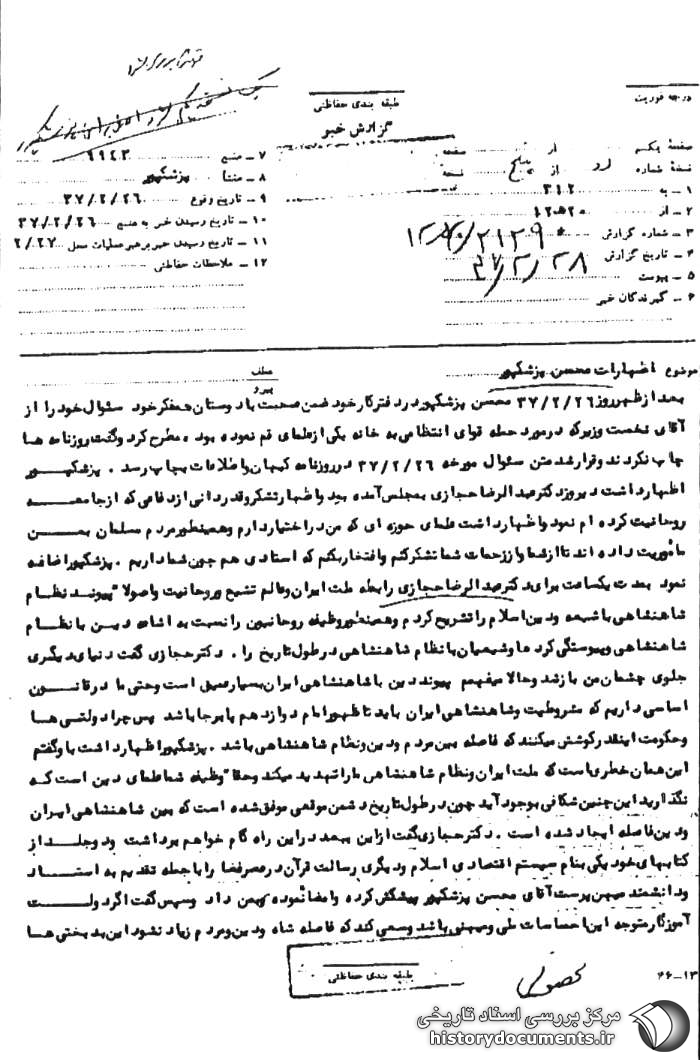 طبقه بندی حفاظتی
گزارش خبر
درجه فوریت
صفحه یکم از صفحه
نسخه شماره از پنج نسخه
۱ - به ۳۱۲
۲ - از ۲۰ه۱۲
۳ - شماره گزارش
۴ - تاریخ گزارش ۳۷/۲/۲۸
۵ - پیوست
۶ - گیرندگان خبر
۷ - منبع ۹۹۴۳
۸ - منشا پزشکپور
۹ - تاریخ وقوع ۳۷/۲/۲۶
۱۰ - تاریخ رسیدن خبر به منبع ۳۷/۲/۲۶
۱۱ - تاریخ رسیدن خبر برهبر عملیات محل ۲/۲۷
۱۲ - ملاحظات حفاظتی
موضوع اظهارات محسن پزشکپور
عطف
پیرو
بعد از ظهر روز ۳۷/۲/۲۶ محسن پزشکپور در دفتر کار خود ضمن صحبت با دوستان همفکر خود سئوال خود را از
آقای نخست وزیر که در مورد حمله قوای انتظامی به خانه یکی از علمای قم نموده بود ه مطرح کرد و گفت روزنامه ها
چاپ نکردند و قرار شد متن سئوال مورخه ۳۷/۲/۲۶ در روزنامه کیهان و اطلاعات بچاپ رسد . پزشکپور
اظهار داشت دیروز دکتر عبدالرضا حجازی بمجلس آمده بود و اظهار تشکر و قدردانی از دفاعی که از جامعه
روحانیت کرده ام نمود و اظهار داشت علمای حوزه ای که من در اختیار دارم و همینطور مردم مسلمان بمن
مأموریت داده اند تا از شما و از زحمات شما تشکر کنم و افتخار بکنم که استادی هم چون شما داریم . پزشکپور اضافه
نمود بمدت یکساعت برای دکتر عبدالرضا حجازی رابطه ملت ایران و عالم تشیع و روحانیت و اصولا" پیوند نظام
شاهنشاهی با شیعه و دین اسلام را تشریح کردم و همینطور وظیفه روحانیون را نسبت به اشاعه دین با نظام
شاهنشاهی و پیوستگی کردها و شیعیان با نظام شاهنشاهی در طول تاریخ را . دکتر حجازی گفت دنیای دیگری
جلوی چشمان من باز شد و حالا میفهمم پیوند دین با شاهنشاهی ایران بسیار عمیق است و حتی ما در قانون
اساسی داریم که مشروطیت و شاهنشاهی ایران باید تا ظهور امام دوازدهم پا برجا باشد پس چرا دولتی ها
و حکومت اینقدر کوشش میکنند که فاصله بین مردم و دین و نظام شاهنشاهی باشد . پزشکپور اظهار داشت باو گفتم
این همان خطری است که ملت ایران و نظام شاهنشاهی ما را تهدید میکند و حقا" وظیفه شما علمای دین است که
نگذارید این چنین شکافی بوجود آید چون در طول تاریخ دشمن موقعی موفق شده است که بین شاهنشاهی ایران
و دین فاصله ایجاد شده است . دکتر حجازی گفت از این ببعد در این راه گام خواهم برداشت و دو جلد از
کتابهای خود یکی بنام سیستم اقتصادی اسلام و دیگری رسالت قرآن در عصر فضا را با جمله تقدیم به استاد
و دانشمند میهن پرست آقای محسن پزشکپور پیشکش کرده و امضا نموده بمن داد و سپس گفت اگر دولت
آموزگار متوجه این احساسات ملی و میهنی باشد و سعی کند که فاصله شاه و دین و مردم زیاد نشود این بدبختی ها
طبقه بندی حفاظتی
۶۶-۱۳
مرکز بررسی اسناد تاریخی
historydocuments.ir